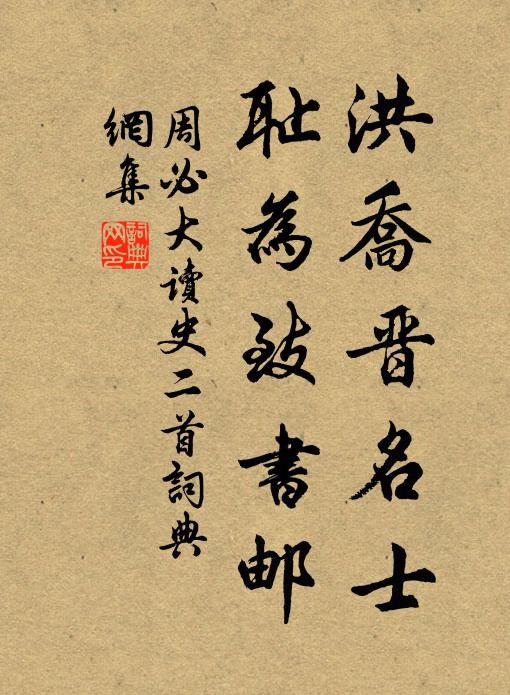 洪喬晋名士
耻為致書邮
周必大讀史二首詞典
網集
詞典
网印